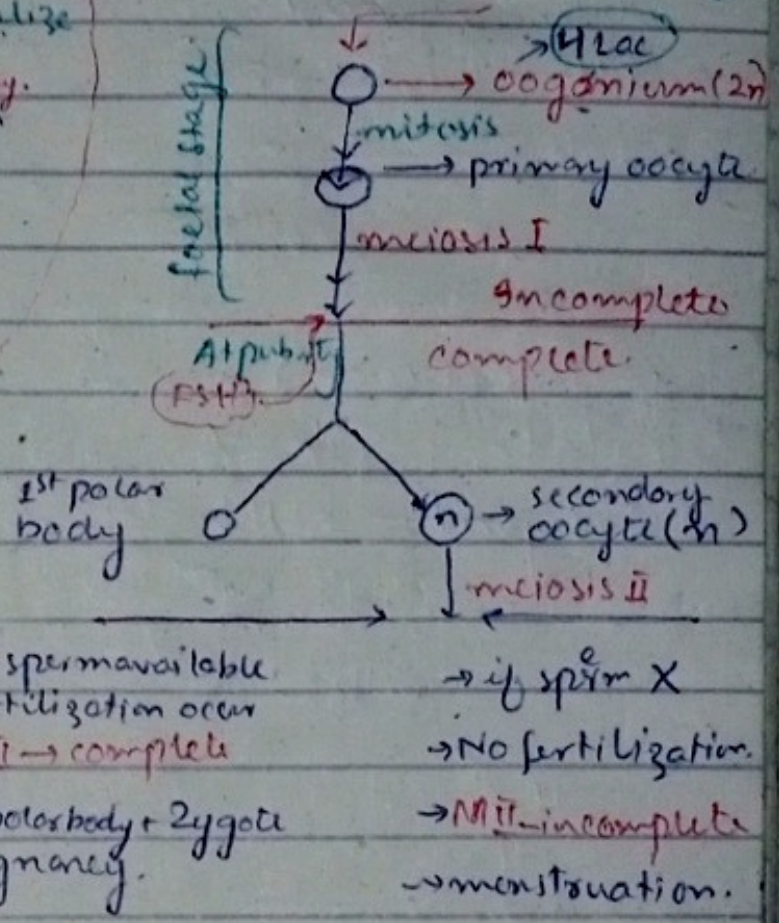 lize
y.
42 lac
oogonium (2n)
foetal stage
mitosis
primary oocyte
meiosis I
Incomplete
At pubty
complete.
FSH
1st polar
body
n
secondary
oocyte (n)
meiosis II
sperm available
tilization occur
→ complete
polar body + zygote
gnancy.
→ if sperm X
→ No fertilization.
→ MII - incomplete
→ menstruation.